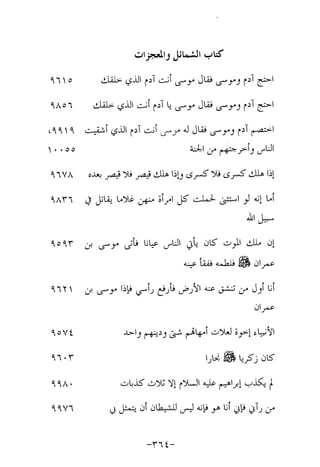 كتاب الشمائل والمعجزات
احتج آدم وموسى فقال موسى أنت آدم الذي خلقك ٩٦١٥
احتج آدم وموسى فقال موسى يا آدم أنت الذي خلقك ٩٨٥٦
اختصم آدم وموسى فقال له موسى أنت آدم الذي أشقيت ٩٩١٩،
الناس وأخرجتهم من الجنة ١٠٠٥٥
إذا هلك كسرى فلا كسرى وإذا هلك قيصر فلا قيصر بعده ٩٦٧٨
أما إنه لو استثنى لحملت كل امرأة منهن غلاما يقاتل في ٩٨٣٦
سبيل الله
إن ملك الموت كان يأتي الناس عيانا فأتى موسى بن ٩٥٩٣
عمران ﷺ فلطمه ففقأ عينه
أنا أول من تنشق عنه الأرض فأرفع رأسي فإذا موسى بن ٩٦٢١
عمران
الأنبياء إخوة لعلات أمهاتهم شتى ودينهم واحد ٩٥٧٤
كان زكريا ﷺ نجارا ٩٦٠٣
لم يكذب إبراهيم عليه السلام إلا ثلاث كذبات ٩٩٨٠
من رآني فإني أنا هو فإنه ليس للشيطان أن يتمثل بي ٩٩٧٦
-٣٦٤-